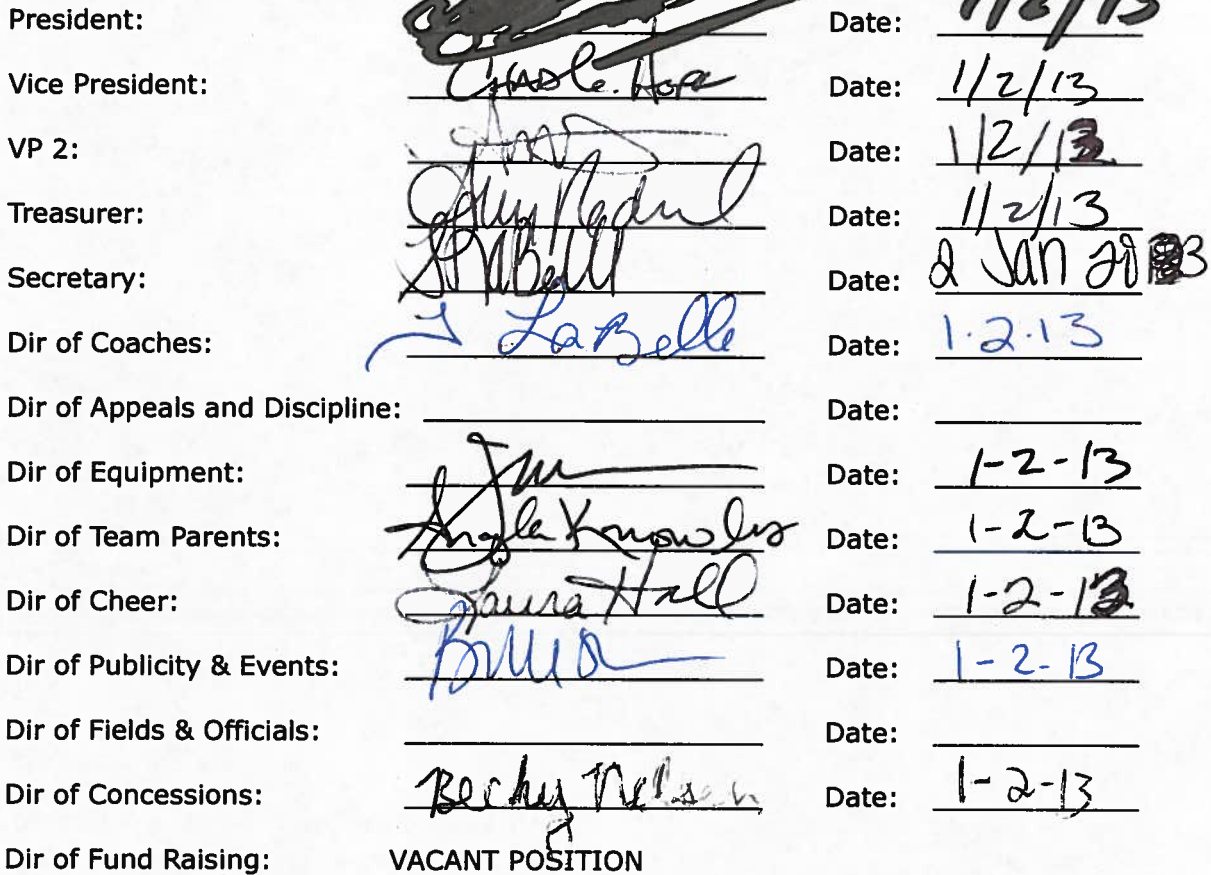 President: Date: 1/2/13
Vice President: Chad C. Hope Date: 1/2/13
VP 2: Date: 1/2/13
Treasurer: Date: 1/2/13
Secretary: Date: 2 Jan 2013
Dir of Coaches: J LaBelle Date: 1.2.13
Dir of Appeals and Discipline: Date:
Dir of Equipment: Date: 1-2-13
Dir of Team Parents: Angela Knowles Date: 1-2-13
Dir of Cheer: Laura Hall Date: 1-2-13
Dir of Publicity & Events: Date: 1-2-13
Dir of Fields & Officials: Date:
Dir of Concessions: Becky Nelson Date: 1-2-13
Dir of Fund Raising: VACANT POSITION